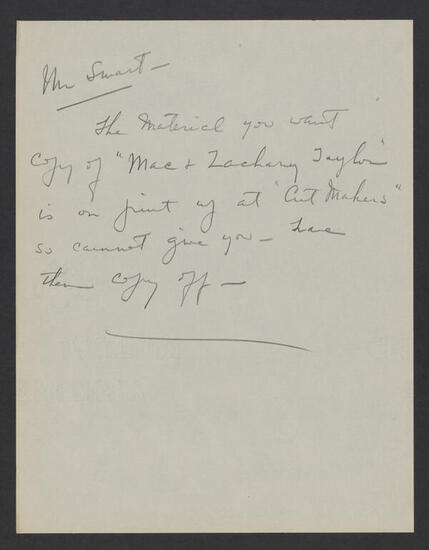 Mr Swart —
The Material you want
Copy of "Mac & Zachary Taylor"
is on print up at "Cut Makers"
so cannot give you — have
them copy off —